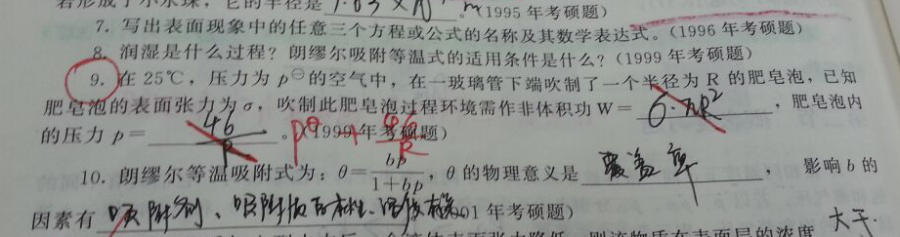 若形成了小水珠，它的半径是 1.63×10 m（1995 年考硕题）
7. 写出表面现象中的任意三个方程或公式的名称及其数学表达式。（1996 年考硕题）
8. 润湿是什么过程？朗缪尔吸附等温式的适用条件是什么？（1999 年考硕题）
9. 在 25℃，压力为 p⊖的空气中，在一玻璃管下端吹制了一个半径为 R 的肥皂泡，已知
肥皂泡的表面张力为 σ，吹制此肥皂泡过程环境需作非体积功 W= σ·πR²，肥皂泡内
的压力 p= 4σ/P。p⊖+4σ/R（1999 年考硕题）
10. 朗缪尔等温吸附式为：θ=bp/(1+bp)，θ 的物理意义是 覆盖率，影响 b 的
因素有 吸附剂、吸附质 本性、温度（2001 年考硕题）
液体表面张力降低，则该物质在表面层的浓度 大于